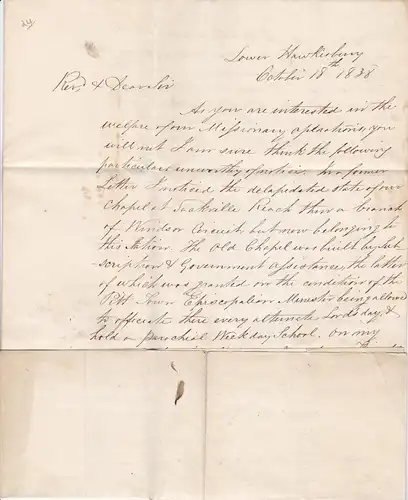 Lower Hawkesbury
October 18th 1838
Revd & Dear Sir
As you are interested in the
welfare of our Missionary operations, you
will not I am sure think the following
particulars unworthy of notice. In a former
Letter I noticed the delapedated state of our
Chapel at Sackville Reach then a branch
of Windsor Circuit but now belonging to
this Station. The Old Chapel was built by Sub
-scription & Government assistance, the latter
of which was granted on the condition of the
Pitt-Town Episcopalian Minister being allowed
to officiate there every alternate Lords day, &
hold a parochial Week day School. On my